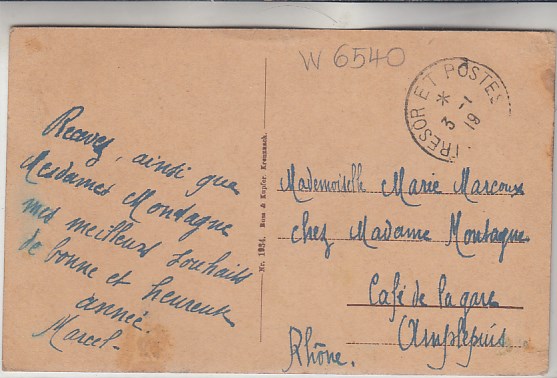 W 6540
TRESOR ET POSTES
* 3 -1 19
Recevez, ainsi que
Mesdames Montagne
mes meilleurs souhaits
de bonne et heureuse
année.
Marcel-
Nr. 1934. Buss & Kupfer, Kreuznach.
Mademoiselle Marie Marcoux
chez Madame Montagne
Café de la gare
Amplepuis
Rhône.